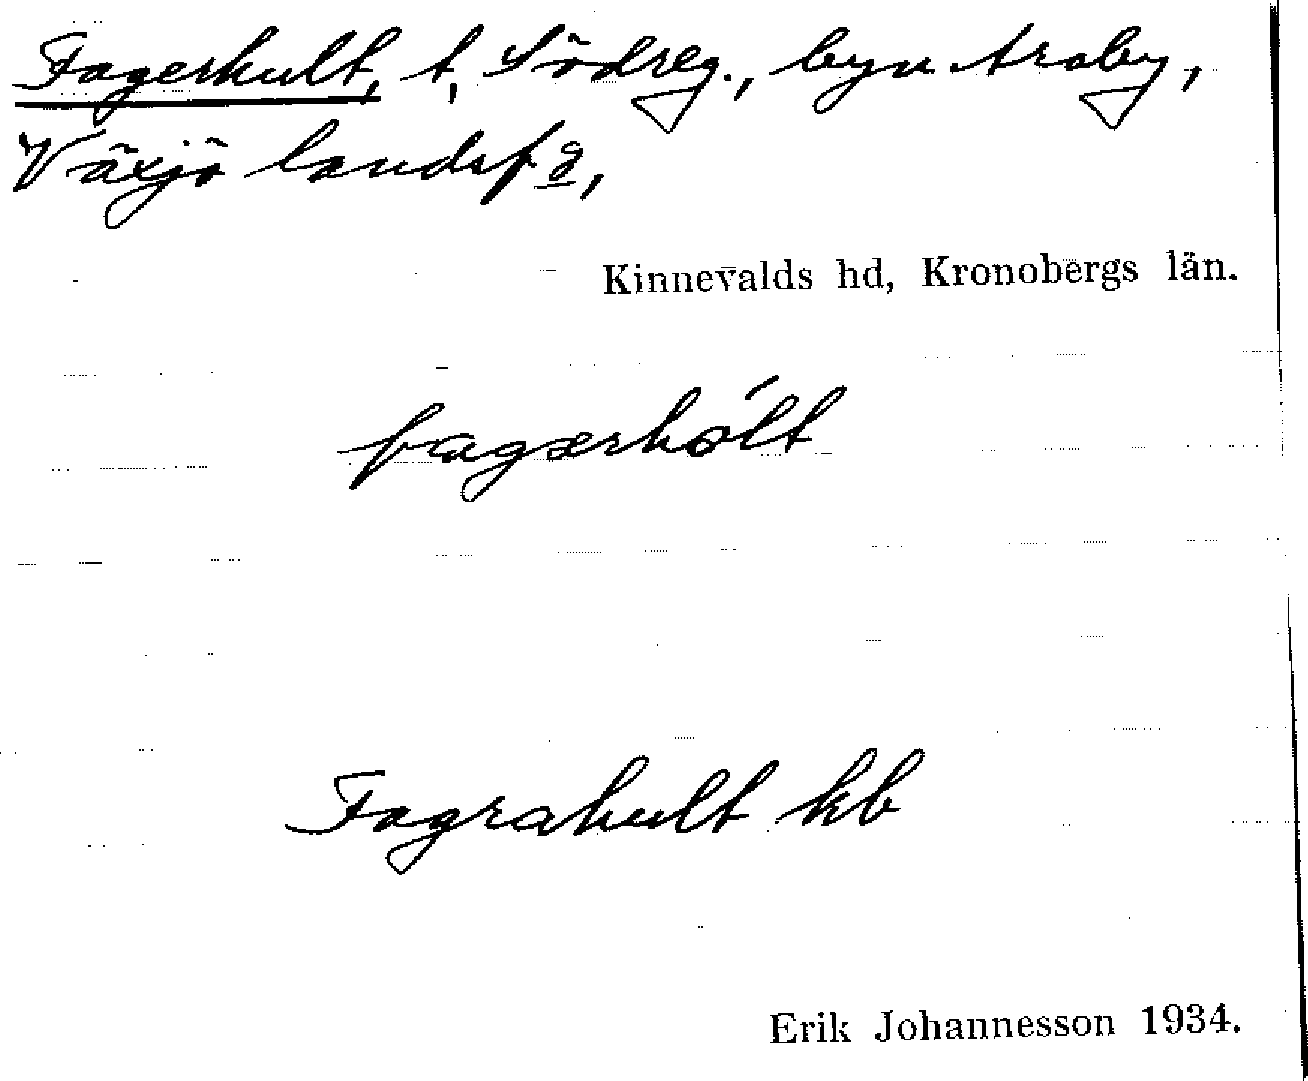 Fagerhult, t, Södreg., byn Araby,
Växjö landsfg,
Kinnevalds hd, Kronobergs län.
fagərhólt
Fagrahult kb
Erik Johannesson 1934.